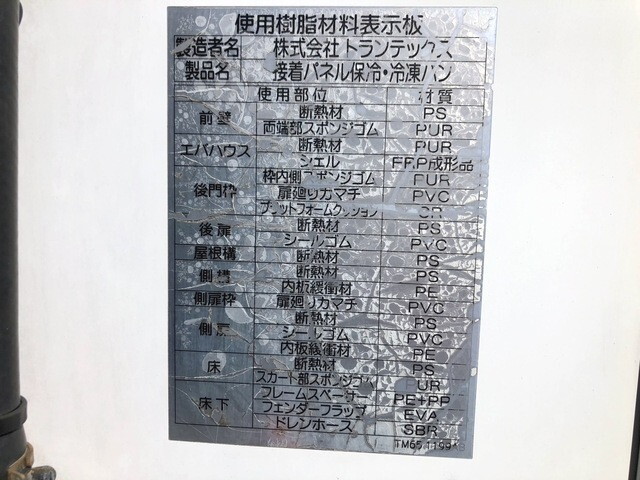 使用樹脂材料表示板
製造者名 株式会社 トランテックス
製品名 接着パネル保冷・冷凍バン
使用部位 材質
前壁 断熱材 PS
両端部スポンジゴム PUR
エバハウス 断熱材 PUR
シェル FRP成形品
後門枠 枠内側スポンジゴム PUR
扉廻りカマチ PVC
プラットフォームクッション CR
後扉 断熱材 PS
シールゴム PVC
屋根構 断熱材 PS
側構 断熱材 PS
内板緩衝材 PE
側扉枠 扉廻りカマチ PVC
側扉 断熱材 PS
シールゴム PVC
内板緩衝材 PE
床 断熱材 PS
スカート部スポンジゴム PUR
床下 フレームスペーサー PE+PP
フェンダーフラップ EVA
ドレンホース SBR